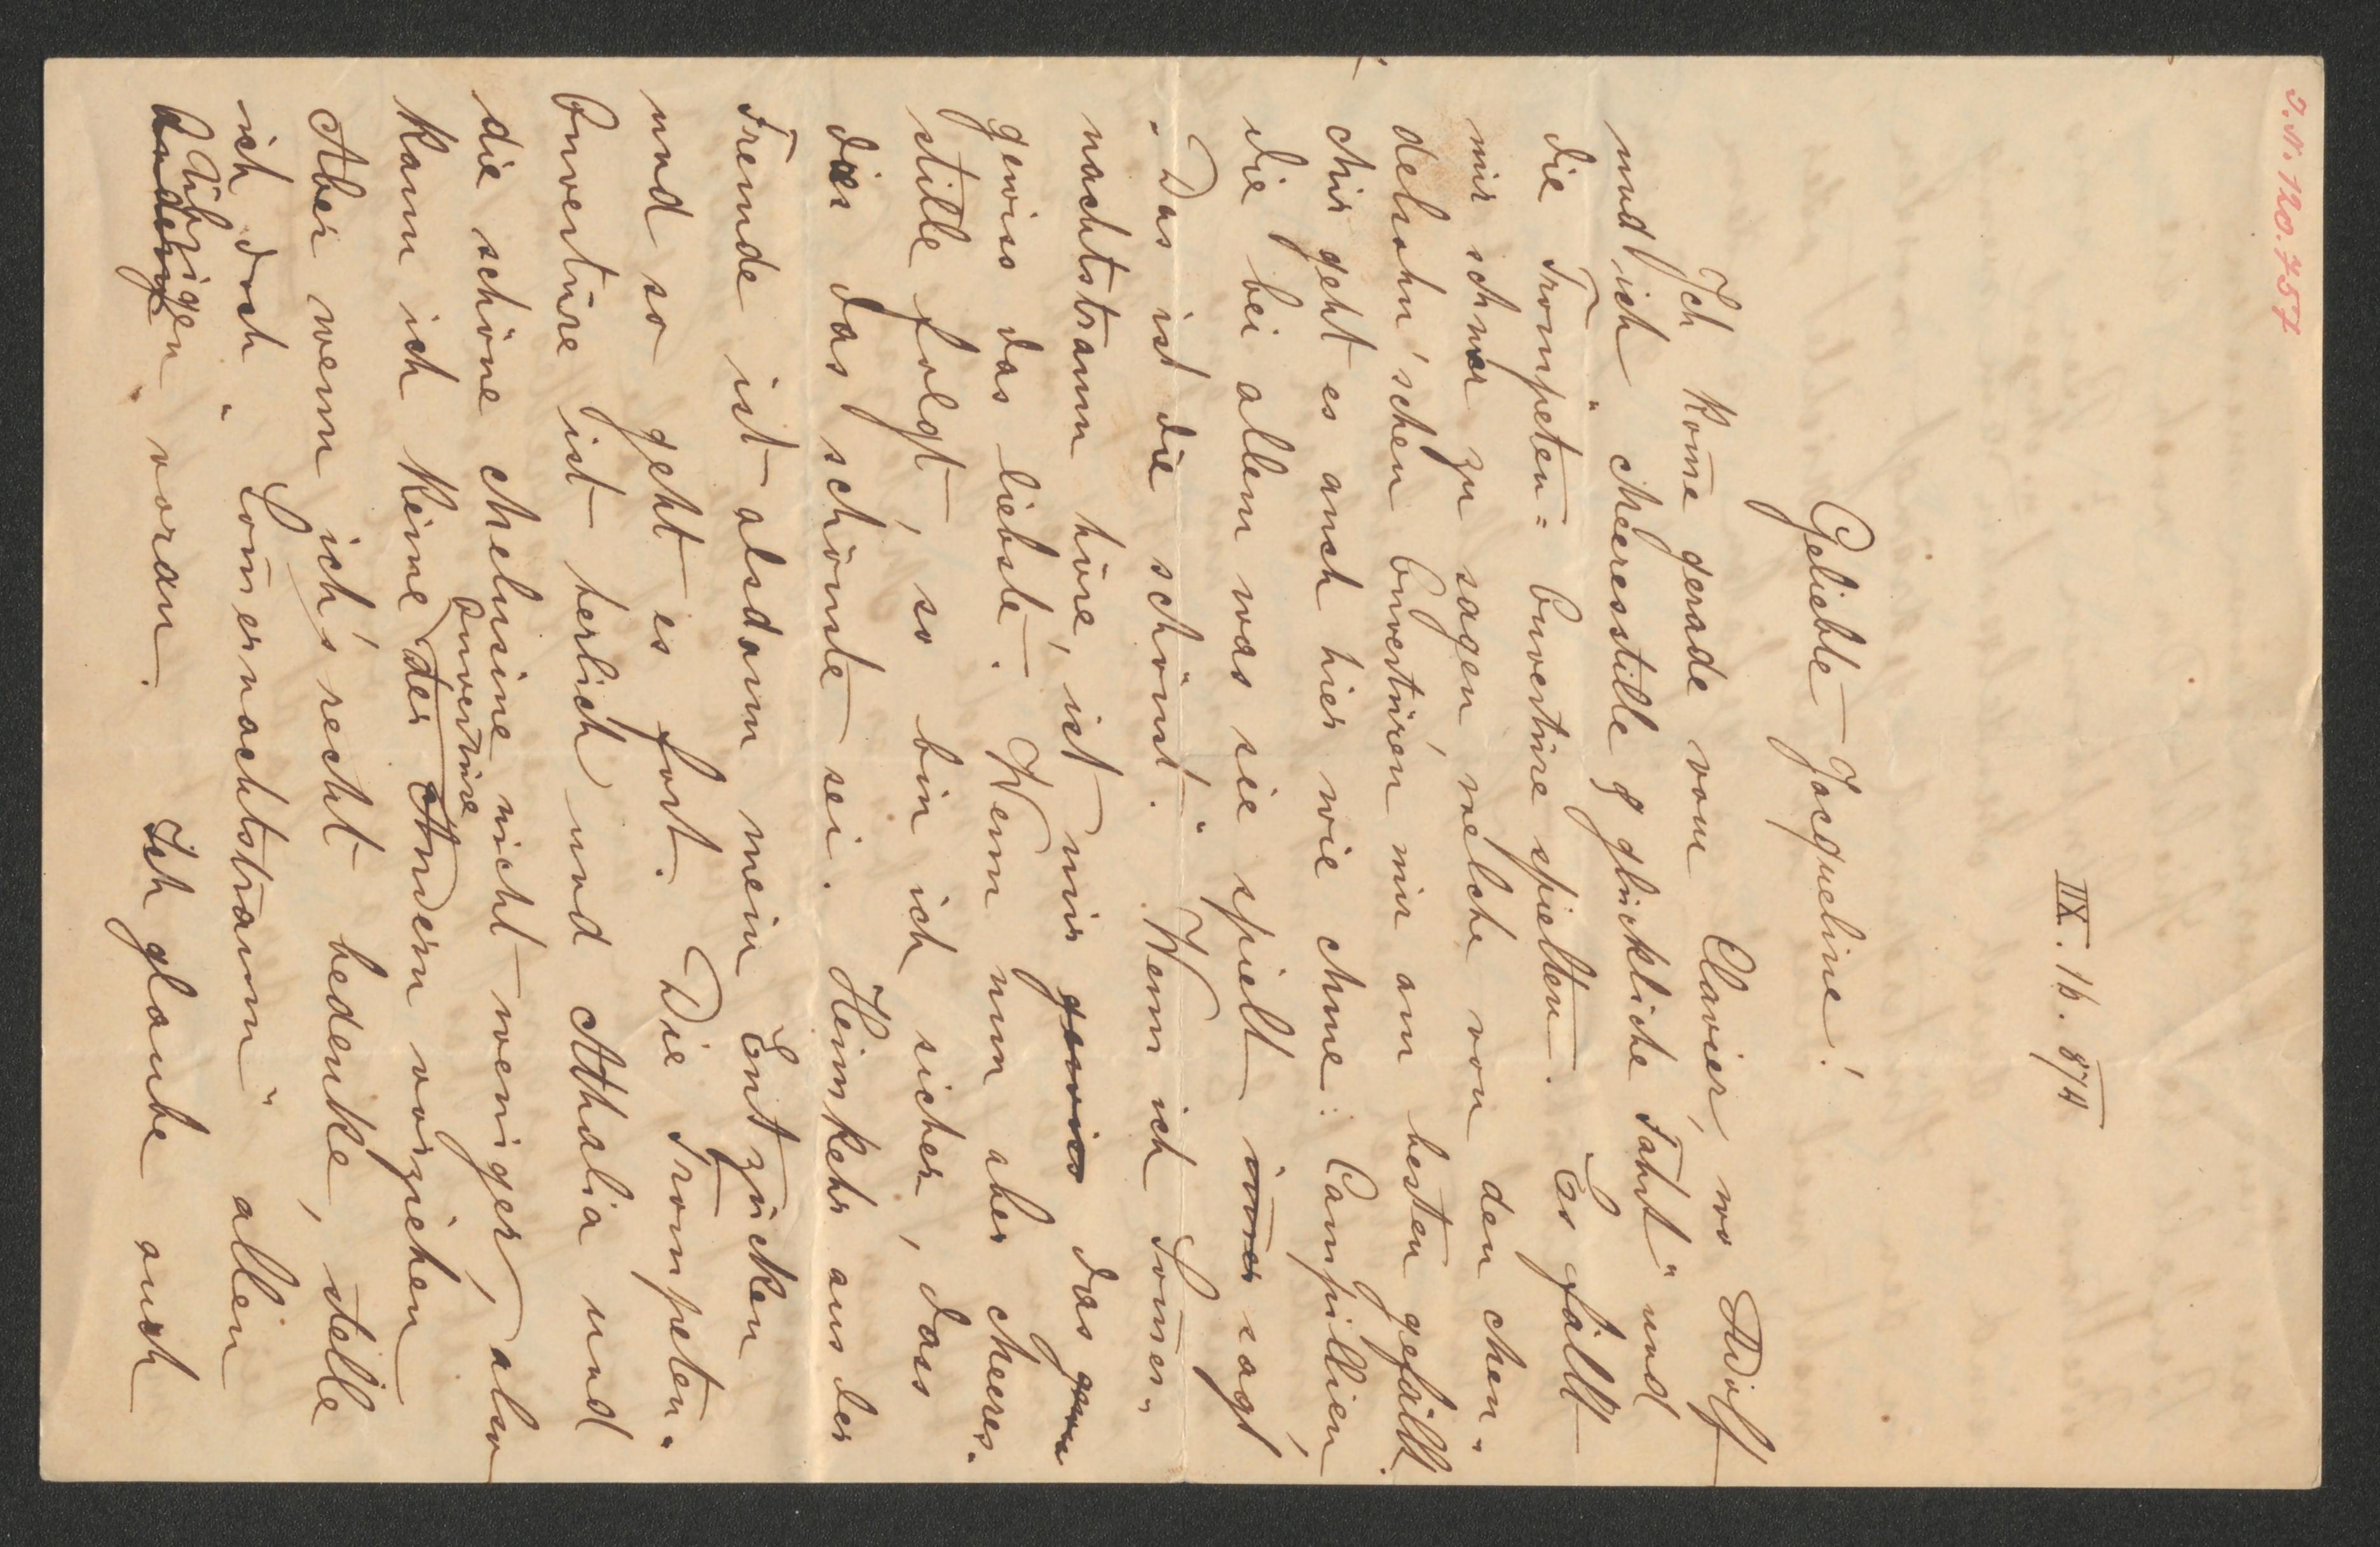 I.N. 120.757
IIX. 16. 874
Geliebte Jacqueline!
Ich kom̄e gerade vom Clavier, wo Adolf
und ich „Meeresstille g glückliche Fahrt“ und
die Trompeten= Ouvertüre spielten. Es fällt
mir schwer zu sagen welche von den Men„
delsohn'schen Ouvertüren mir am besten gefällt.
Mir geht es auch hier wie Mme: Campillien,
die bei allem was sie spielt im̄er sagt
„Das ist die schönst.“ Wenn ich Som̄er„
nachtstraum höre, ist mir gewiss das gewi
gewiss das liebste. Wenn nun aber Meeres„
stille folgt, so bin ich sicher, dass
dies das schönste sei. Heimkehr aus der
Fremde ist alsdann mein Entzücken
und so geht es fort. Die Trompeten„
Ouvertüre ist herlich und Athalia und
die schöne Melusine nicht weniger, also
Ouvertüre
kann ich keine der Andern vorziehen
Aber wenn ich's recht bedenke, stelle
ich doch „Som̄ernachtstraum“ allen
Übrigen
Anderen voran. Ich glaube auch